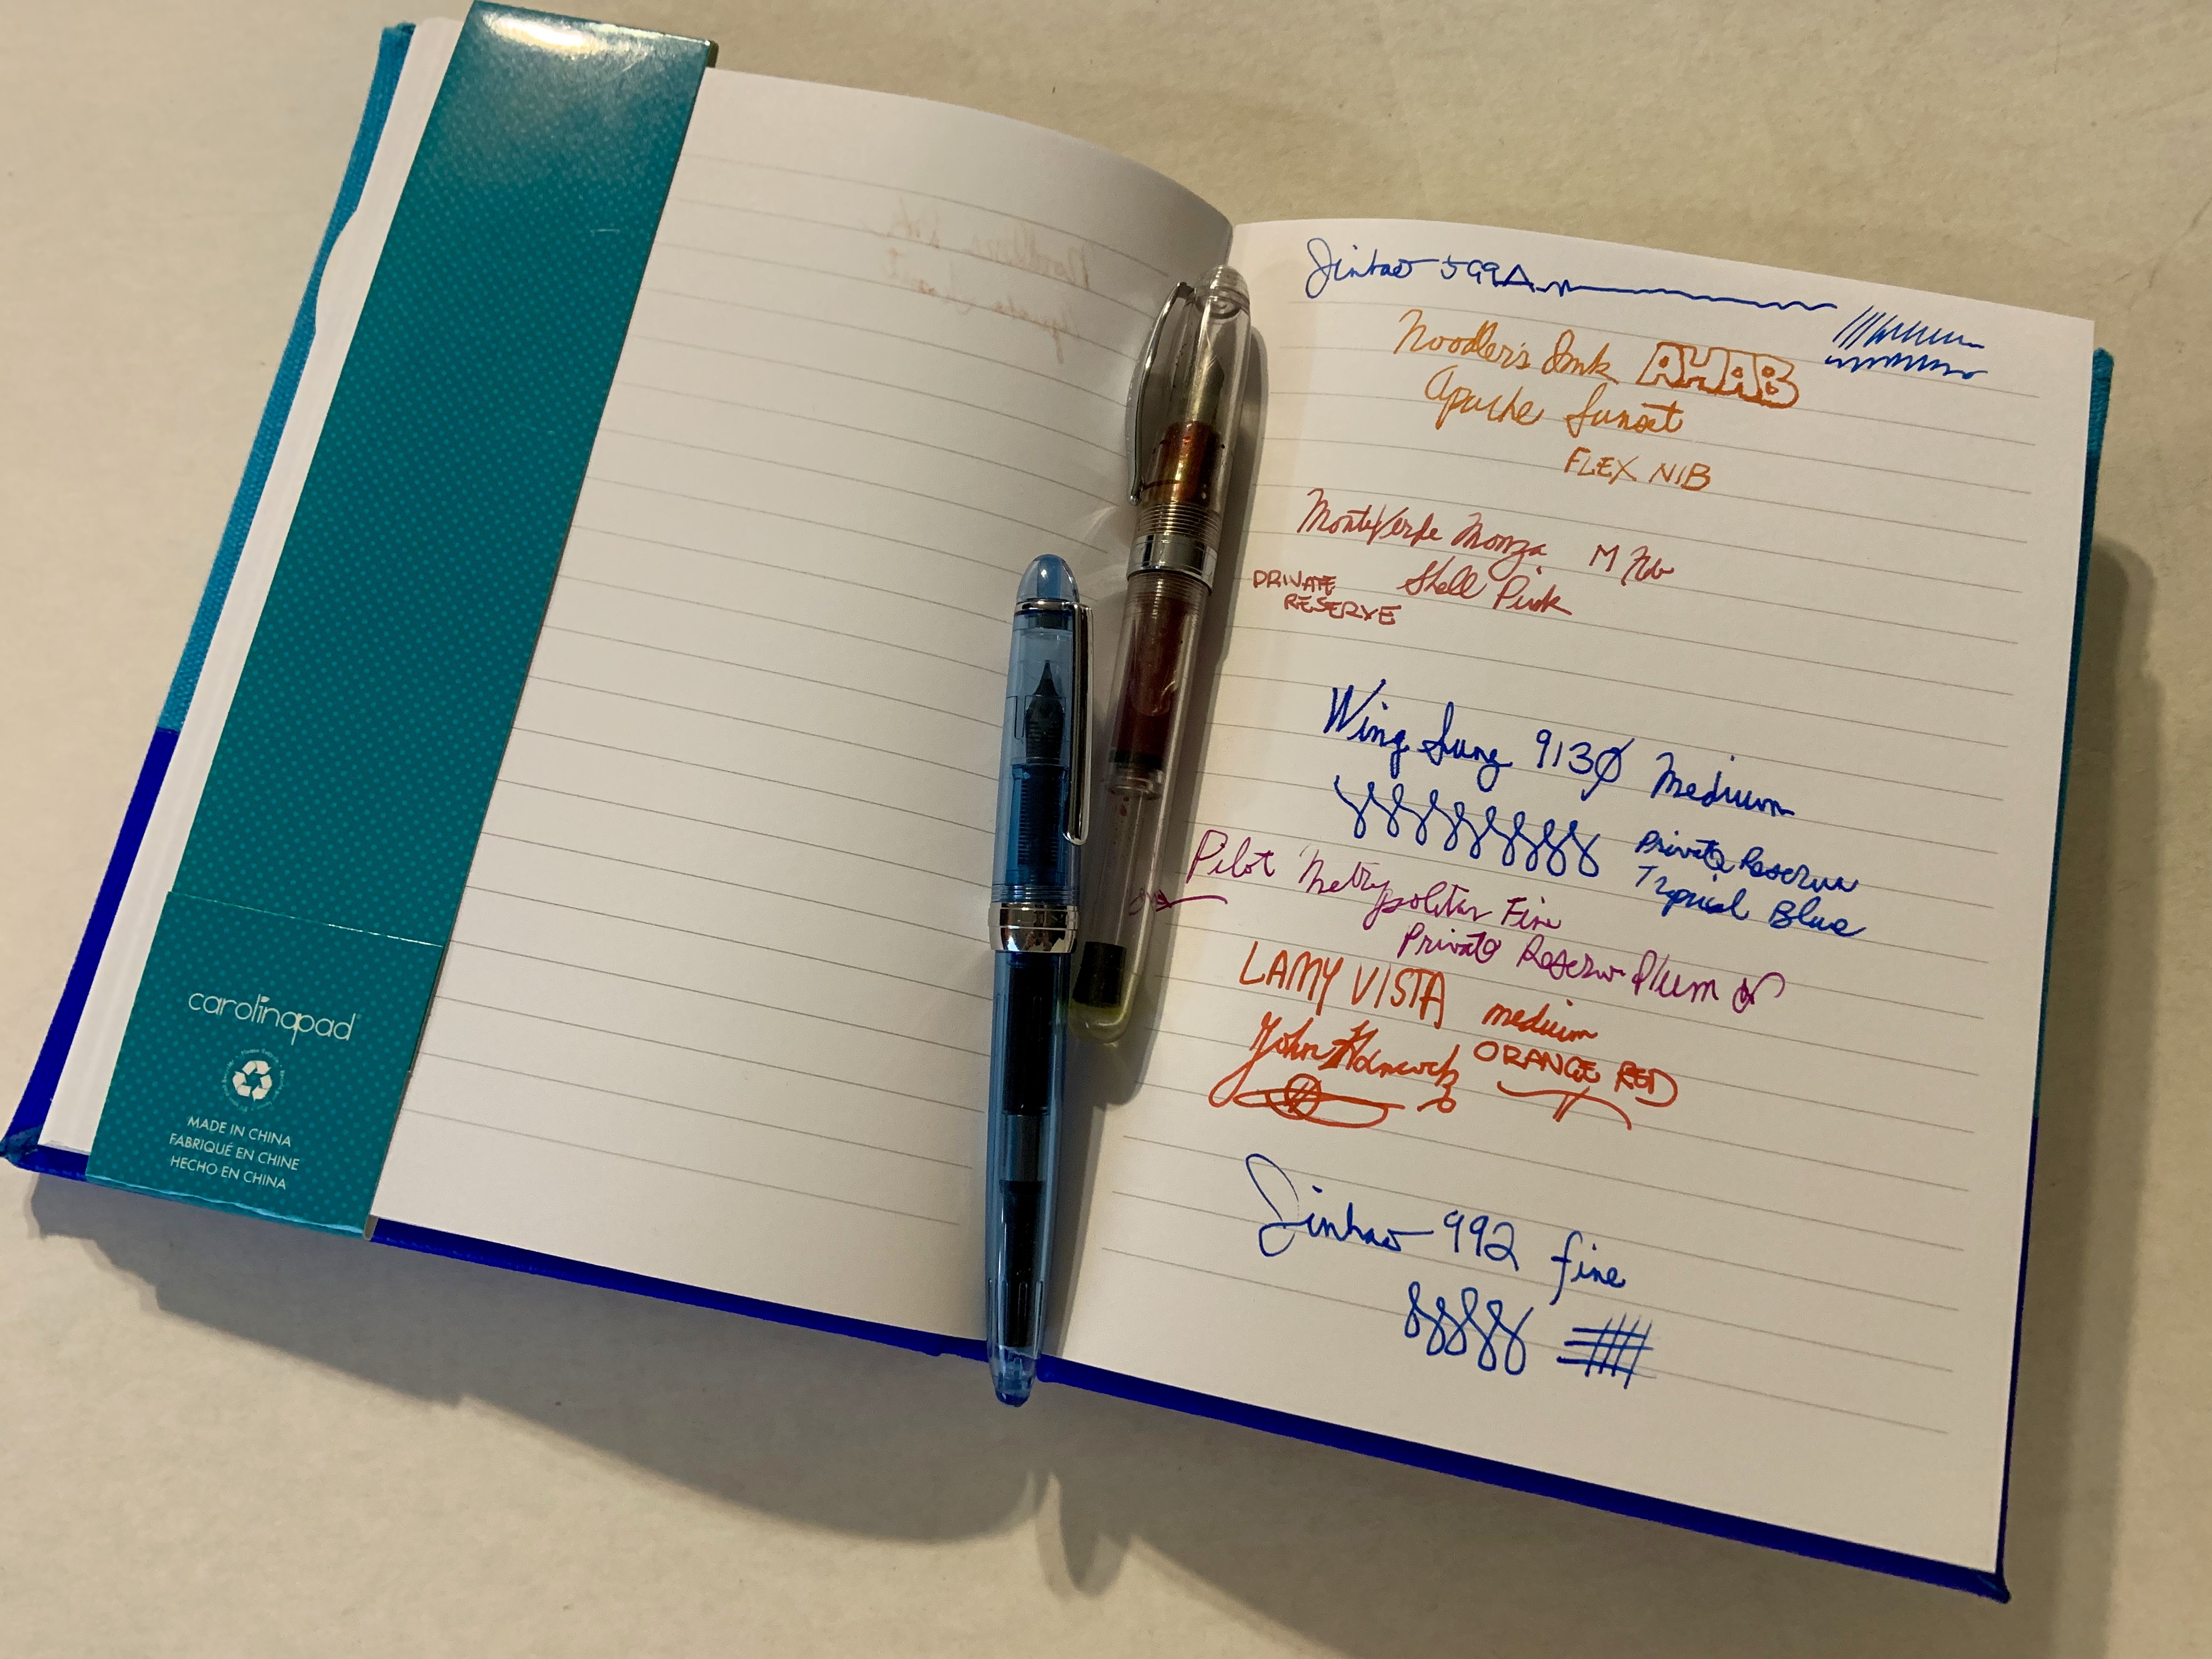 carolinapad
MADE IN CHINA
FABRIQUÉ EN CHINE
HECHO EN CHINA
Jinhao 599A
Noodler's Ink AHAB
Apache Sunset
FLEX NIB
MonteVerde Monza M Nib
PRIVATE RESERVE
Shell Pink
Wing Sung 9130 Medium
Private Reserve
Tropical Blue
Pilot Metropolitan Fine
Private Reserve Plum
LAMY VISTA medium
John Hancock ORANGE RED
Jinhao 992 fine